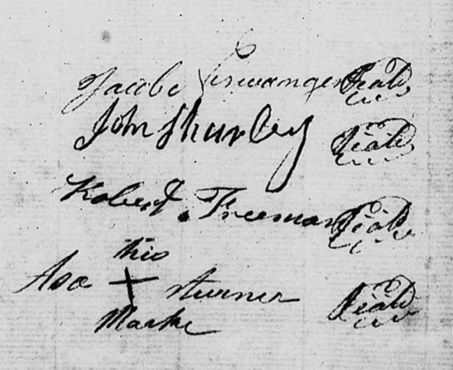 Jacob Viswanger Seal
John Shurley Seal
Robert. Freeman Seal
his
Asa + sturner Seal
Marke